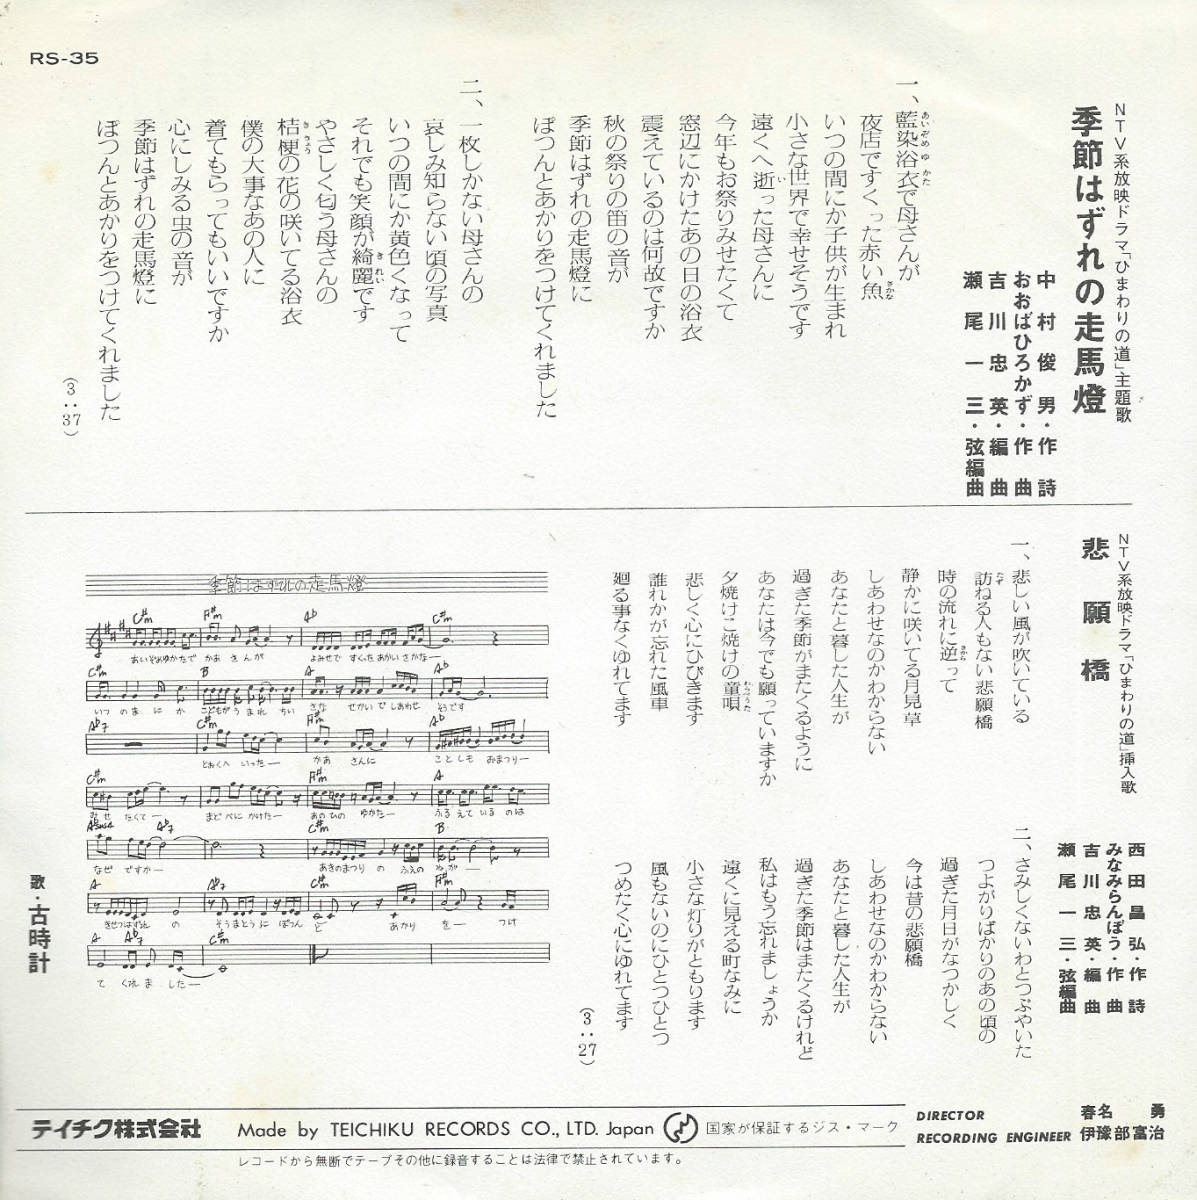 RS-35
NTV系放映ドラマ「ひまわりの道」主題歌
季節はずれの走馬燈
中村俊男・作詩
おおばひろかず・作曲
吉川忠英・編曲
瀬尾一三・弦編曲
一、藍染浴衣で母さんが
あいぞめゆかた
夜店ですくった赤い魚
さかな
いつの間にか子供が生まれ
小さな世界で幸せそうです
遠くへ逝った母さんに
い
今年もお祭りみせたくて
窓辺にかけたあの日の浴衣
震えているのは何故ですか
秋の祭りの笛の音が
季節はずれの走馬燈に
ぽつんとあかりをつけてくれました
二、一枚しかない母さんの
哀しみ知らない頃の写真
いつの間にか黄色くなって
それでも笑顔が綺麗です
きれい
やさしく匂う母さんの
桔梗の花の咲いてる浴衣
ききょう
僕の大事なあの人に
着てもらってもいいですか
心にしみる虫の音が
季節はずれの走馬燈に
ぽつんとあかりをつけてくれました
(3:37)
NTV系放映ドラマ「ひまわりの道」挿入歌
悲願橋
西田昌弘・作詩
みなみらんぼう・作曲
吉川忠英・編曲
瀬尾一三・弦編曲
一、悲しい風が吹いている
訪ねる人もない悲願橋
たず
時の流れに逆って
さから
静かに咲いてる月見草
しあわせなのかわからない
あなたと暮した人生が
過ぎた季節がまたくるように
あなたは今でも願っていますか
夕焼けこ焼けの童唄
わらうた
悲しく心にひびきます
誰れかが忘れた風車
廻る事なくゆれてます
二、さみしくないわとつぶやいた
つよがりばかりのあの頃の
過ぎた月日がなつかしく
今は昔の悲願橋
しあわせなのかわからない
あなたと暮した人生が
過ぎた季節はまたくるけれど
私はもう忘れましょうか
遠くに見える町なみに
小さな灯りがともります
風もないのにひとつひとつ
つめたく心にゆれてます
(3:27)
季節はずれの走馬燈
C#m F#m Ab C#m
あいぞめゆかたで かあ さんが よみせで すくったあかいさかなー
C#m B A Ab
いつ のま に か こどもが うまれ ちい さな せかいで しあわせ そうです
Ab7 C#m F#m Ab
とおくへ いったー かあ さんに ことしも おまつりー
C#m F#m A
みせ たくてー まどべに かけたー あのひの ゆかたー ふるえて いる のは
Absus4 Ab7 C#m B
なぜ ですかー あきのまつり の ふえの ねがー
A Ab7 C#m F#m
きせつはずれ の そうまとうに ぽつん と あかり をー つけ
A Ab7 C#m
て くれ ましたー
歌・古時計
テイチク株式会社
Made by TEICHIKU RECORDS CO., LTD. Japan
国家が保証するジス・マーク
DIRECTOR 春名 勇
RECORDING ENGINEER 伊豫部富治
レコードから無断でテープその他に録音することは法律で禁止されています。